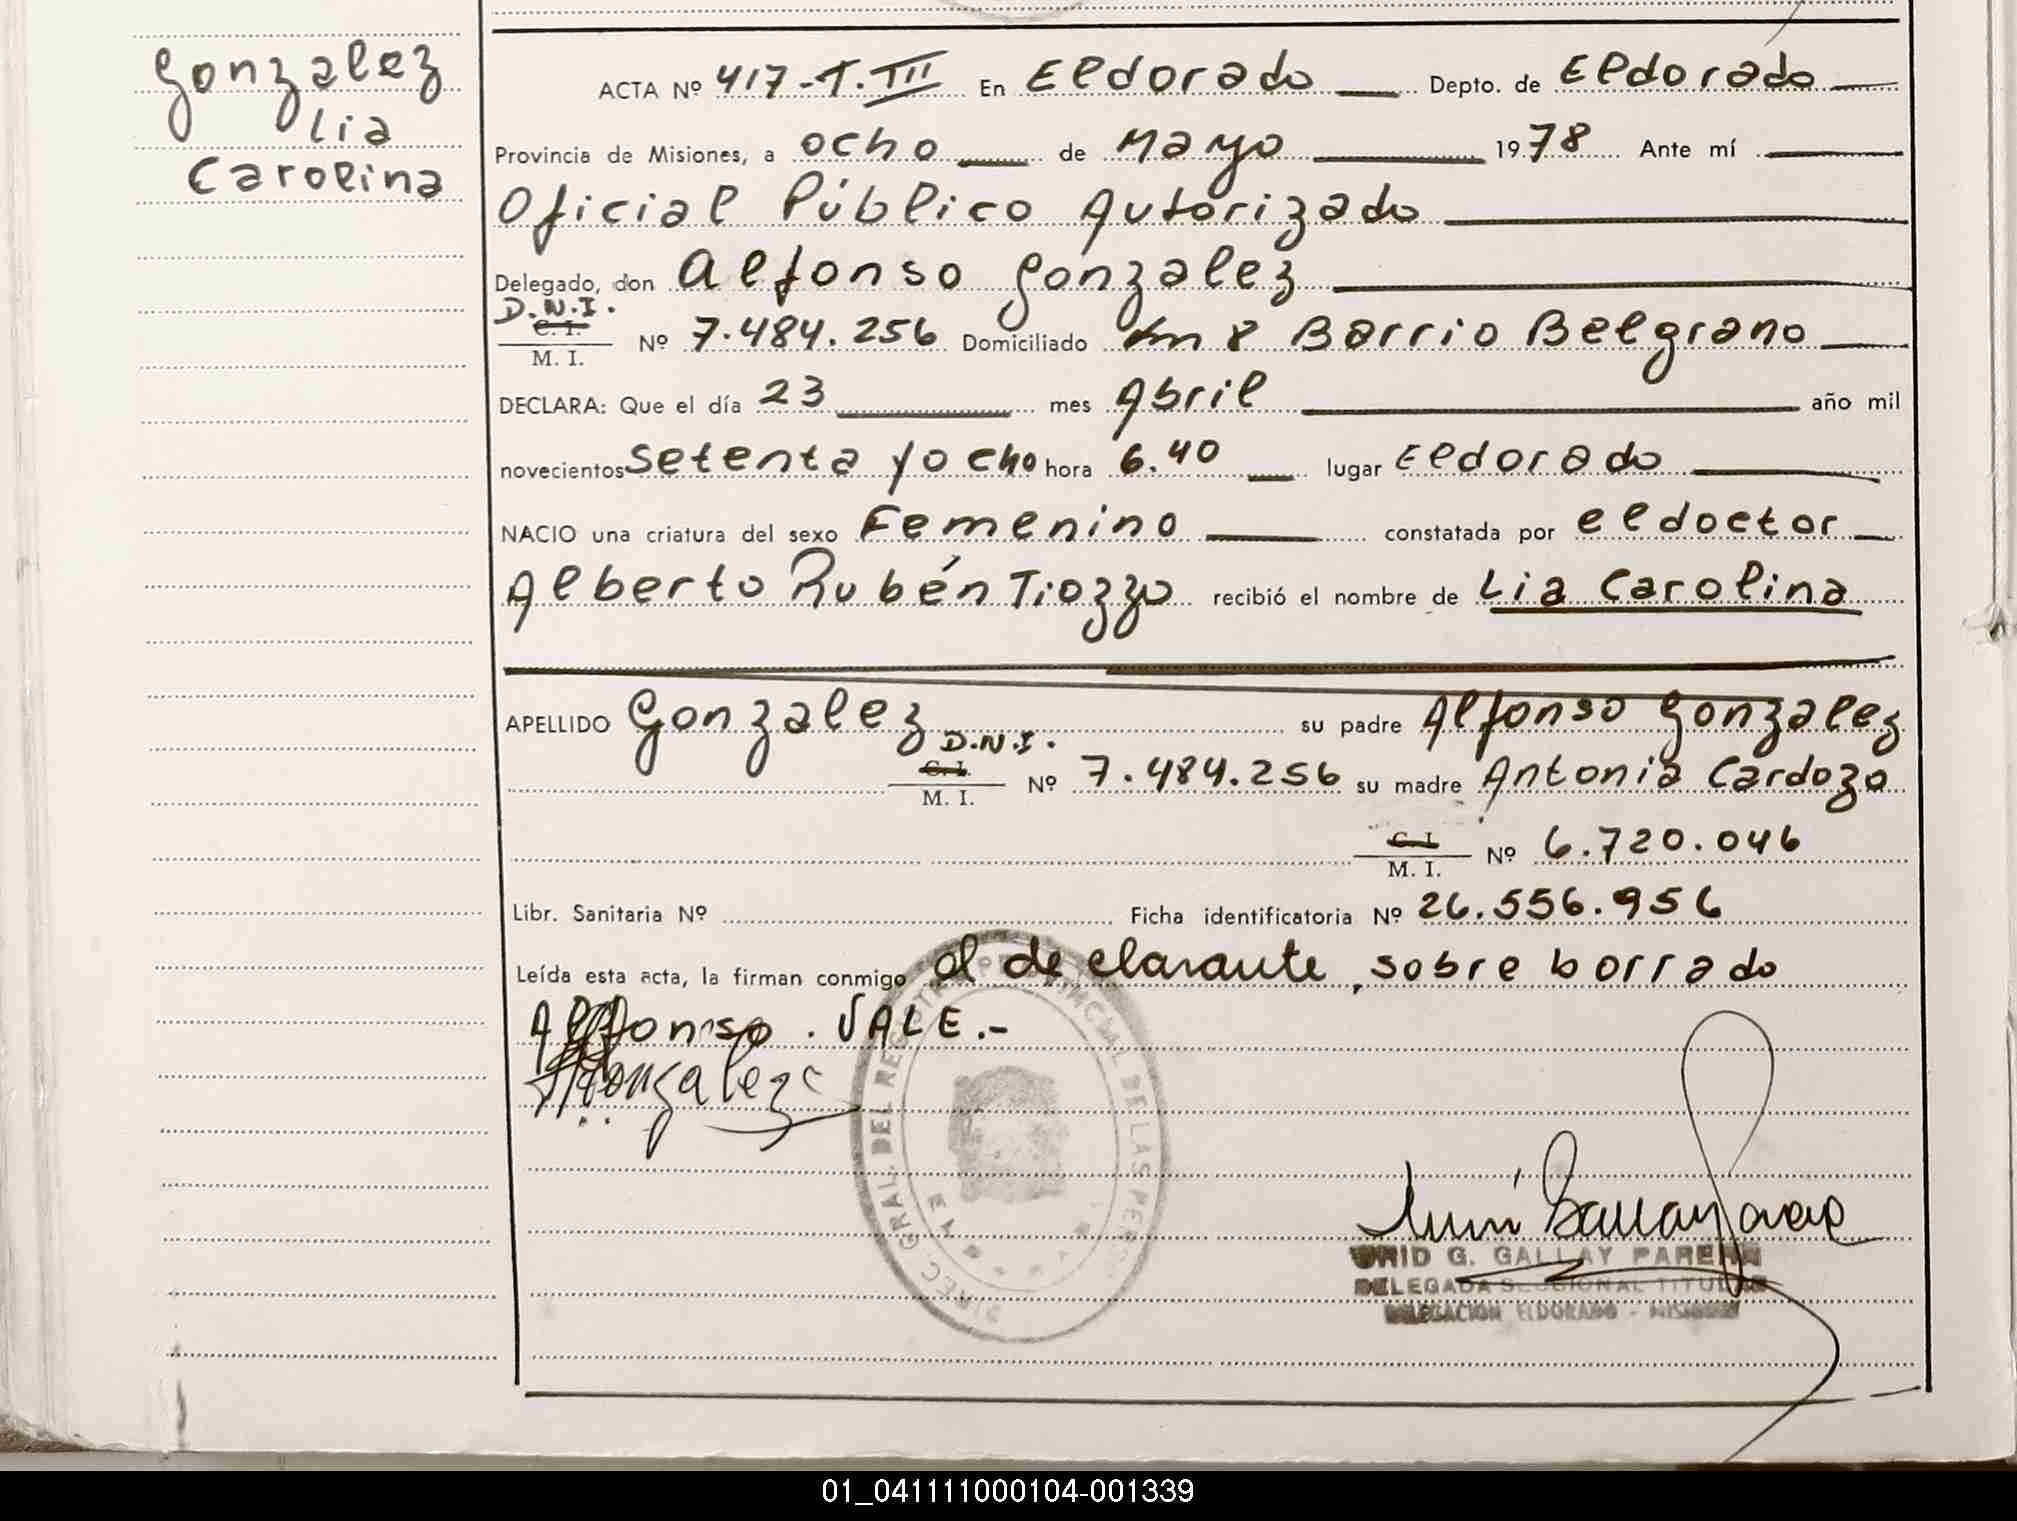 Gonzalez
Lia
Carolina
ACTA Nº 417-T.III En Eldorado Depto. de Eldorado
Provincia de Misiones, a ocho de Mayo 1978 Ante mí
Oficial Público Autorizado
Delegado, don Alfonso Gonzalez
D.N.I.
C. I.
M. I. Nº 7.484.256 Domiciliado Km 8 Barrio Belgrano
DECLARA: Que el día 23 mes Abril año mil
novecientos setenta y ocho hora 6.40 lugar Eldorado
NACIO una criatura del sexo Femenino constatada por el doctor
Alberto Rubén Tiozzo recibió el nombre de Lia Carolina
APELLIDO Gonzalez su padre Alfonso Gonzalez
D.N.I.
C. I.
M. I. Nº 7.484.256 su madre Antonia Cardozo
C. I.
M. I. Nº 6.720.046
Libr. Sanitaria Nº Ficha identificatoria Nº 26.556.956
Leída esta acta, la firman conmigo el declarante, sobre borrado
Alfonso. VALE.-
Gonzalez
DIREC. GRAL. DEL REGISTRO PROVINCIAL DE LAS PERSONAS
G. GALLAY
DELEGADA SECCIONAL TITULAR
DELEGACION ELDORADO - MISIONES
01_041111000104-001339